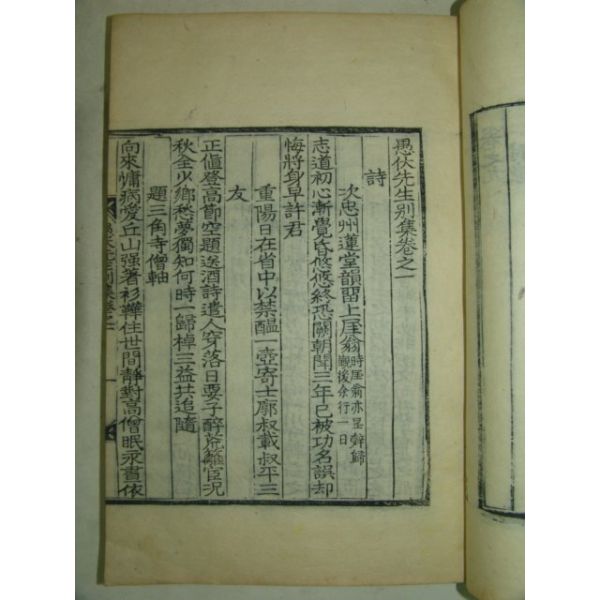 愚伏先生別集卷之一
詩
次忠州蓮堂韻留上厓翁時厓翁亦呈辭歸覲後余行一日
志道初心漸覺昏悠悠終恐闕朝聞三年已被功名誤却
悔將身早許君
重陽日在省中以禁醞一壺寄士廓叔載叔平三
友
正値登高節空題送酒詩遣人穿落日要子醉荒籬官況
秋全少鄕愁夢獨知何時一歸棹三益共追隨
題三角寺僧軸
向來慵病愛丘山强著衫鞾住世間靜對高僧眠永晝依